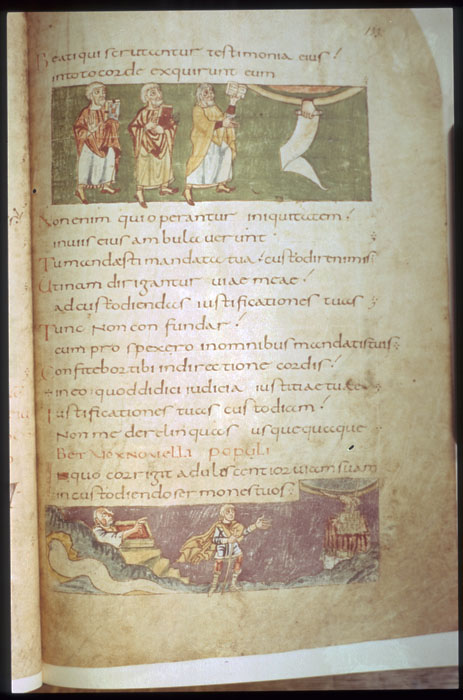 Beati qui scrutantur testimonia eius !
intoto corde exquirunt eum
Non enim qui operantur iniquitatem !
inviis eius ambulaverunt
Tu mandasti mandata tua ! custodirenimis
Utinam dirigantur viae meae !
ad custodiendas iustificationes tuas :
Tunc non confundar !
cum prospexero in omnibus mandatis tuis :
Confitebor tibi indirectione cordis !
in eo quod didici judicia iustitiae tuae
Iustificationes tuas custodiam !
Non me derelinquas usquequaque
populi
In quo corrigit adulescentior viam suam
in custodiendo sermones tuos :